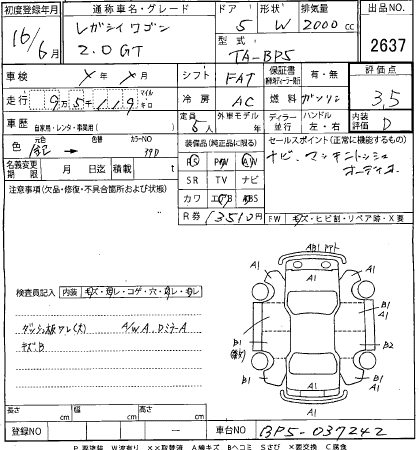 初度登録年月 通称車名・グレード ドア 形状 排気量 出品NO.
16/6月 レガシイワゴン 2.0GT 5 W 2000cc
型式 TA-BP5 2637
車検 X年 X月 シフト FAT 保証書 有・無 評価点
走行 9万5千119 マイル キロ 冷房 AC 燃料 ガソリン 3.5
車歴 自家用・レンタ・事業用( ) 定員 5人 外車モデル 年 ディーラー 並行 ハンドル 左・右 内装評価 D
色 元色 → 色替 カラーNO 39D 装備品(純正品に限る) セールスポイント(正常に機能するもの)
名義変更期限 月 日迄 積載 t PS PW AW ナビ、マッキントッシュ
注意事項(欠品・修復・不具合箇所および状態) SR TV ナビ オーディオ
カワ エアB ABS
R券 13510円 FW キズ・ヒビ割・リペア跡・X要
検査員記入 内装
ダッシュ板ワレ(大) A/W A DミラーA
キズ、B
A1
A1 A1
B1 B1
A1 B2
B1 A1
A1 A1
長さ cm 幅 cm 高さ cm
登録NO ー 車台NO BP5-037242
P要塗装 W波有り XX取替済 A線キズ Bヘコミ Sさび X要交換 C腐食